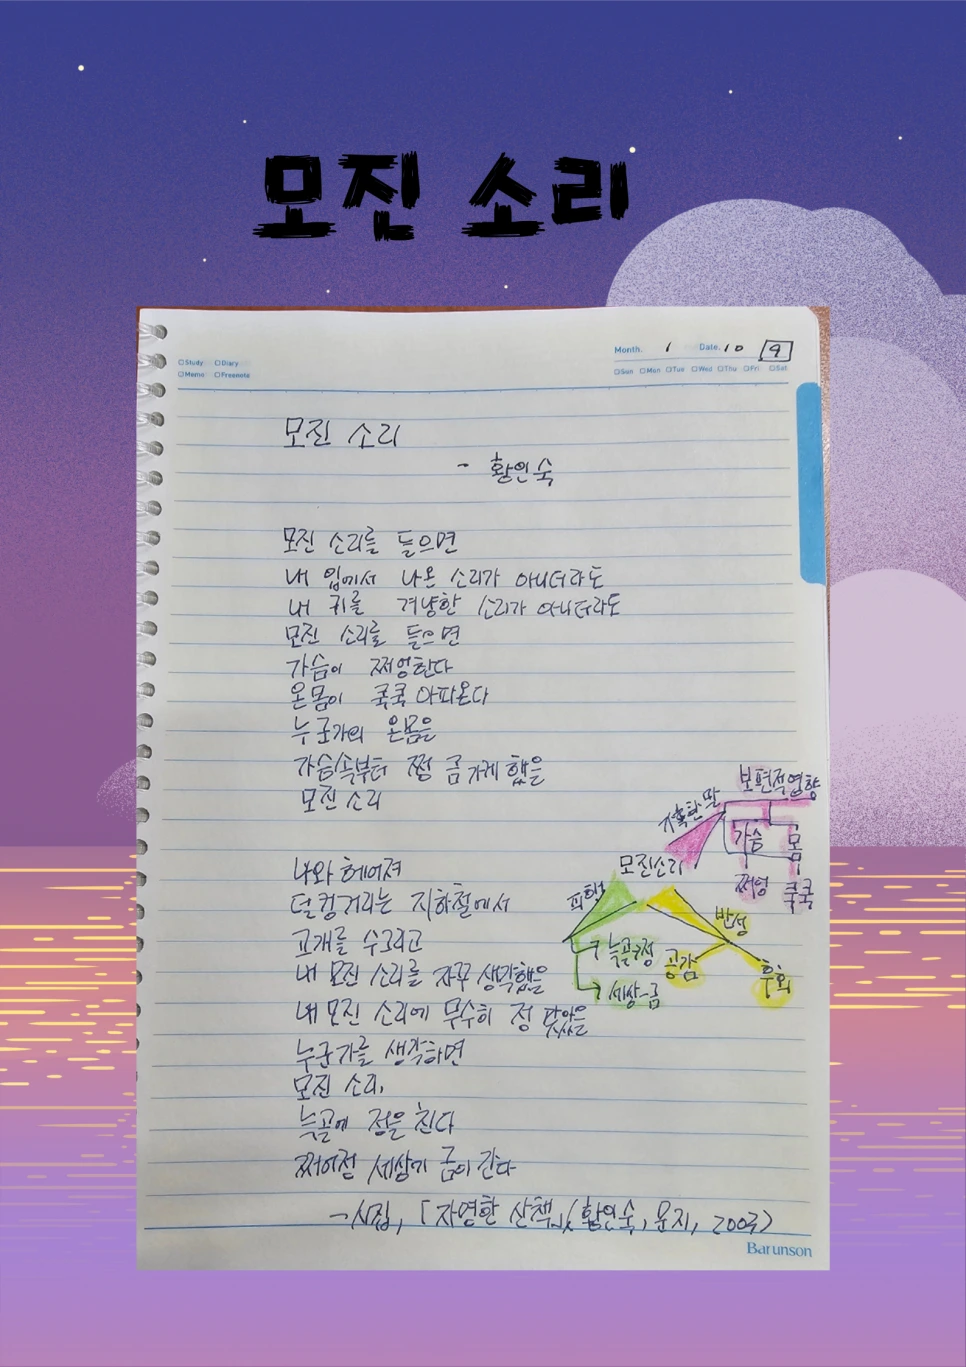 모진 소리
□Study □Diary
□Memo □Freenote
Month. 1 Date. 10 9
□Sun □Mon □Tue □Wed □Thu □Fri □Sat
모진 소리
- 황인숙
모진 소리를 들으면
내 입에서 나온 소리가 아니더라도
내 귀를 겨냥한 소리가 아니더라도
모진 소리를 들으면
가슴이 쩌엉한다
온몸이 쿡쿡 아파온다
누군가의 온몸을
가슴속부터 쩡 금가게 했을
모진 소리
나와 헤어져
덜컹거리는 지하철에서
고개를 수그리고
내 모진 소리를 자꾸 생각했을
내 모진 소리에 무수히 정 맞았을
누군가를 생각하면
모진 소리,
늑골에 정을 친다
쩌어정 세상에 금이 간다
-시집, 「자명한 산책」, (황인숙, 문지, 2003)
보편적영향
가혹한 말
가슴
몸
쩌엉
쿡쿡
모진소리
피해
늑골-정
세상-금
반성
공감
후회
Barunson